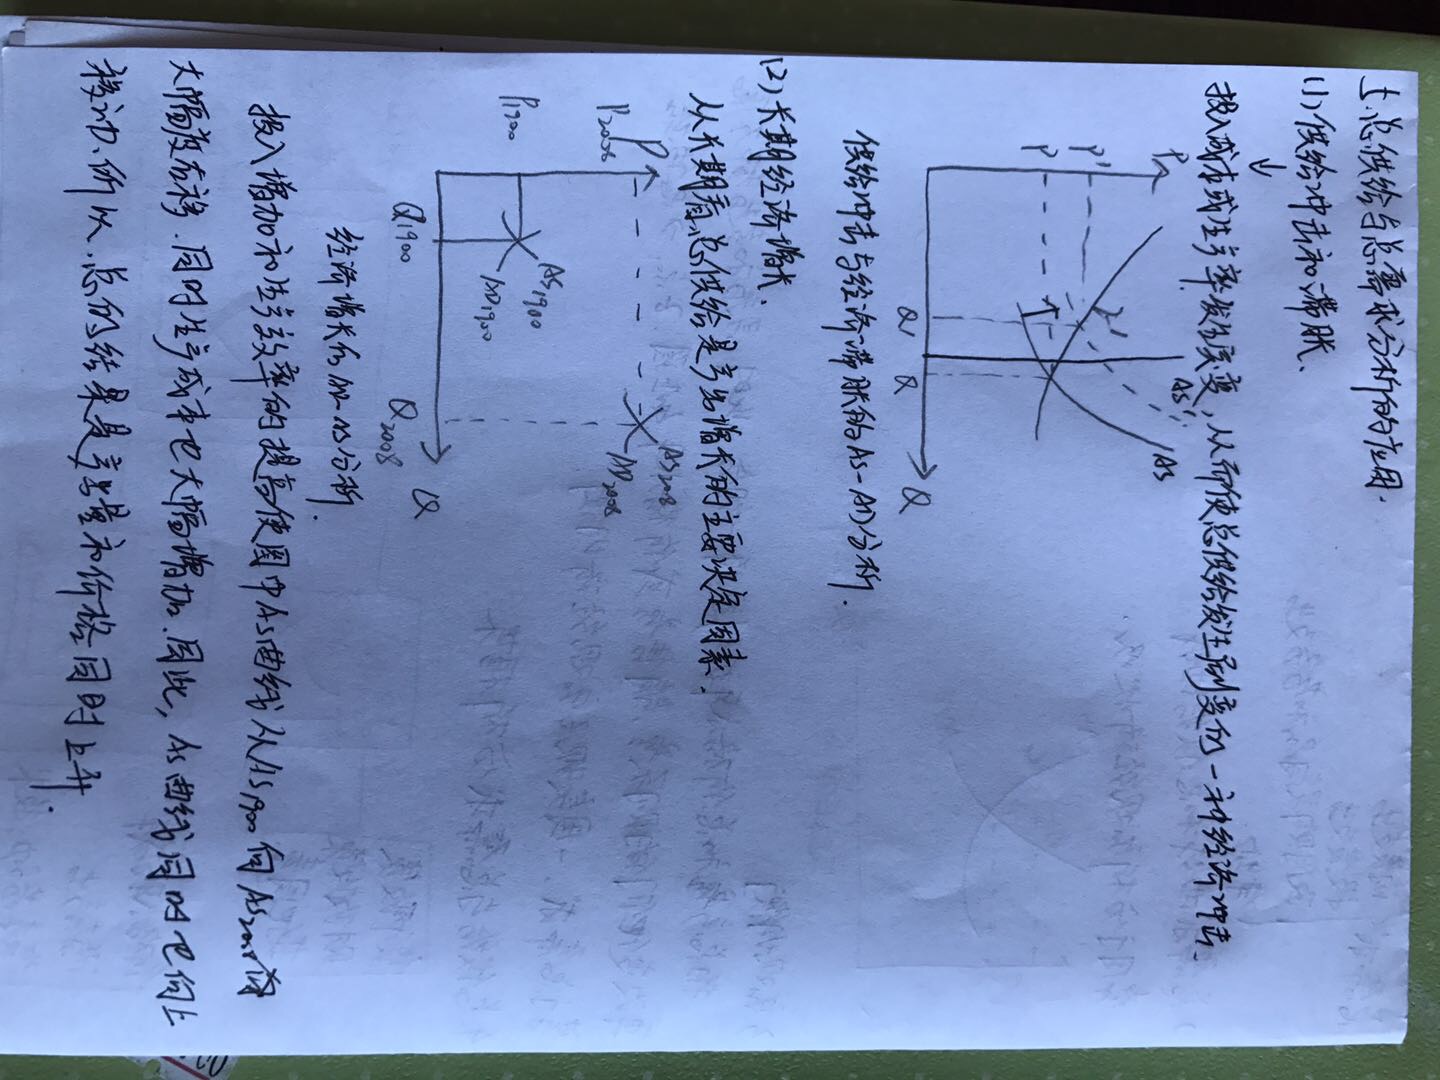 5.总供给与总需求分析的应用.
(1)供给冲击和滞胀、
↓
投入成本或生产率发生突变,从而使总供给发生剧变的一种经济冲击、
P
P'
P
AS'
AS
Q'
Q
Q
供给冲击与经济滞胀的AS-AD分析.
(2)长期经济增长、
从长期看,总供给是产出增长的主要决定因素.
P
P2008
AS2008
AD2008
P1900
AS1900
AD1900
Q1900
Q2008
Q
经济增长的AD-AS分析.
投入增加和生产效率的提高使图中AS曲线从AS1900向AS2008
大幅度右移.同时生产成本也大幅增加.因此,AS曲线同时也向上
移动、所以.总的结果是产量和价格同时上升.